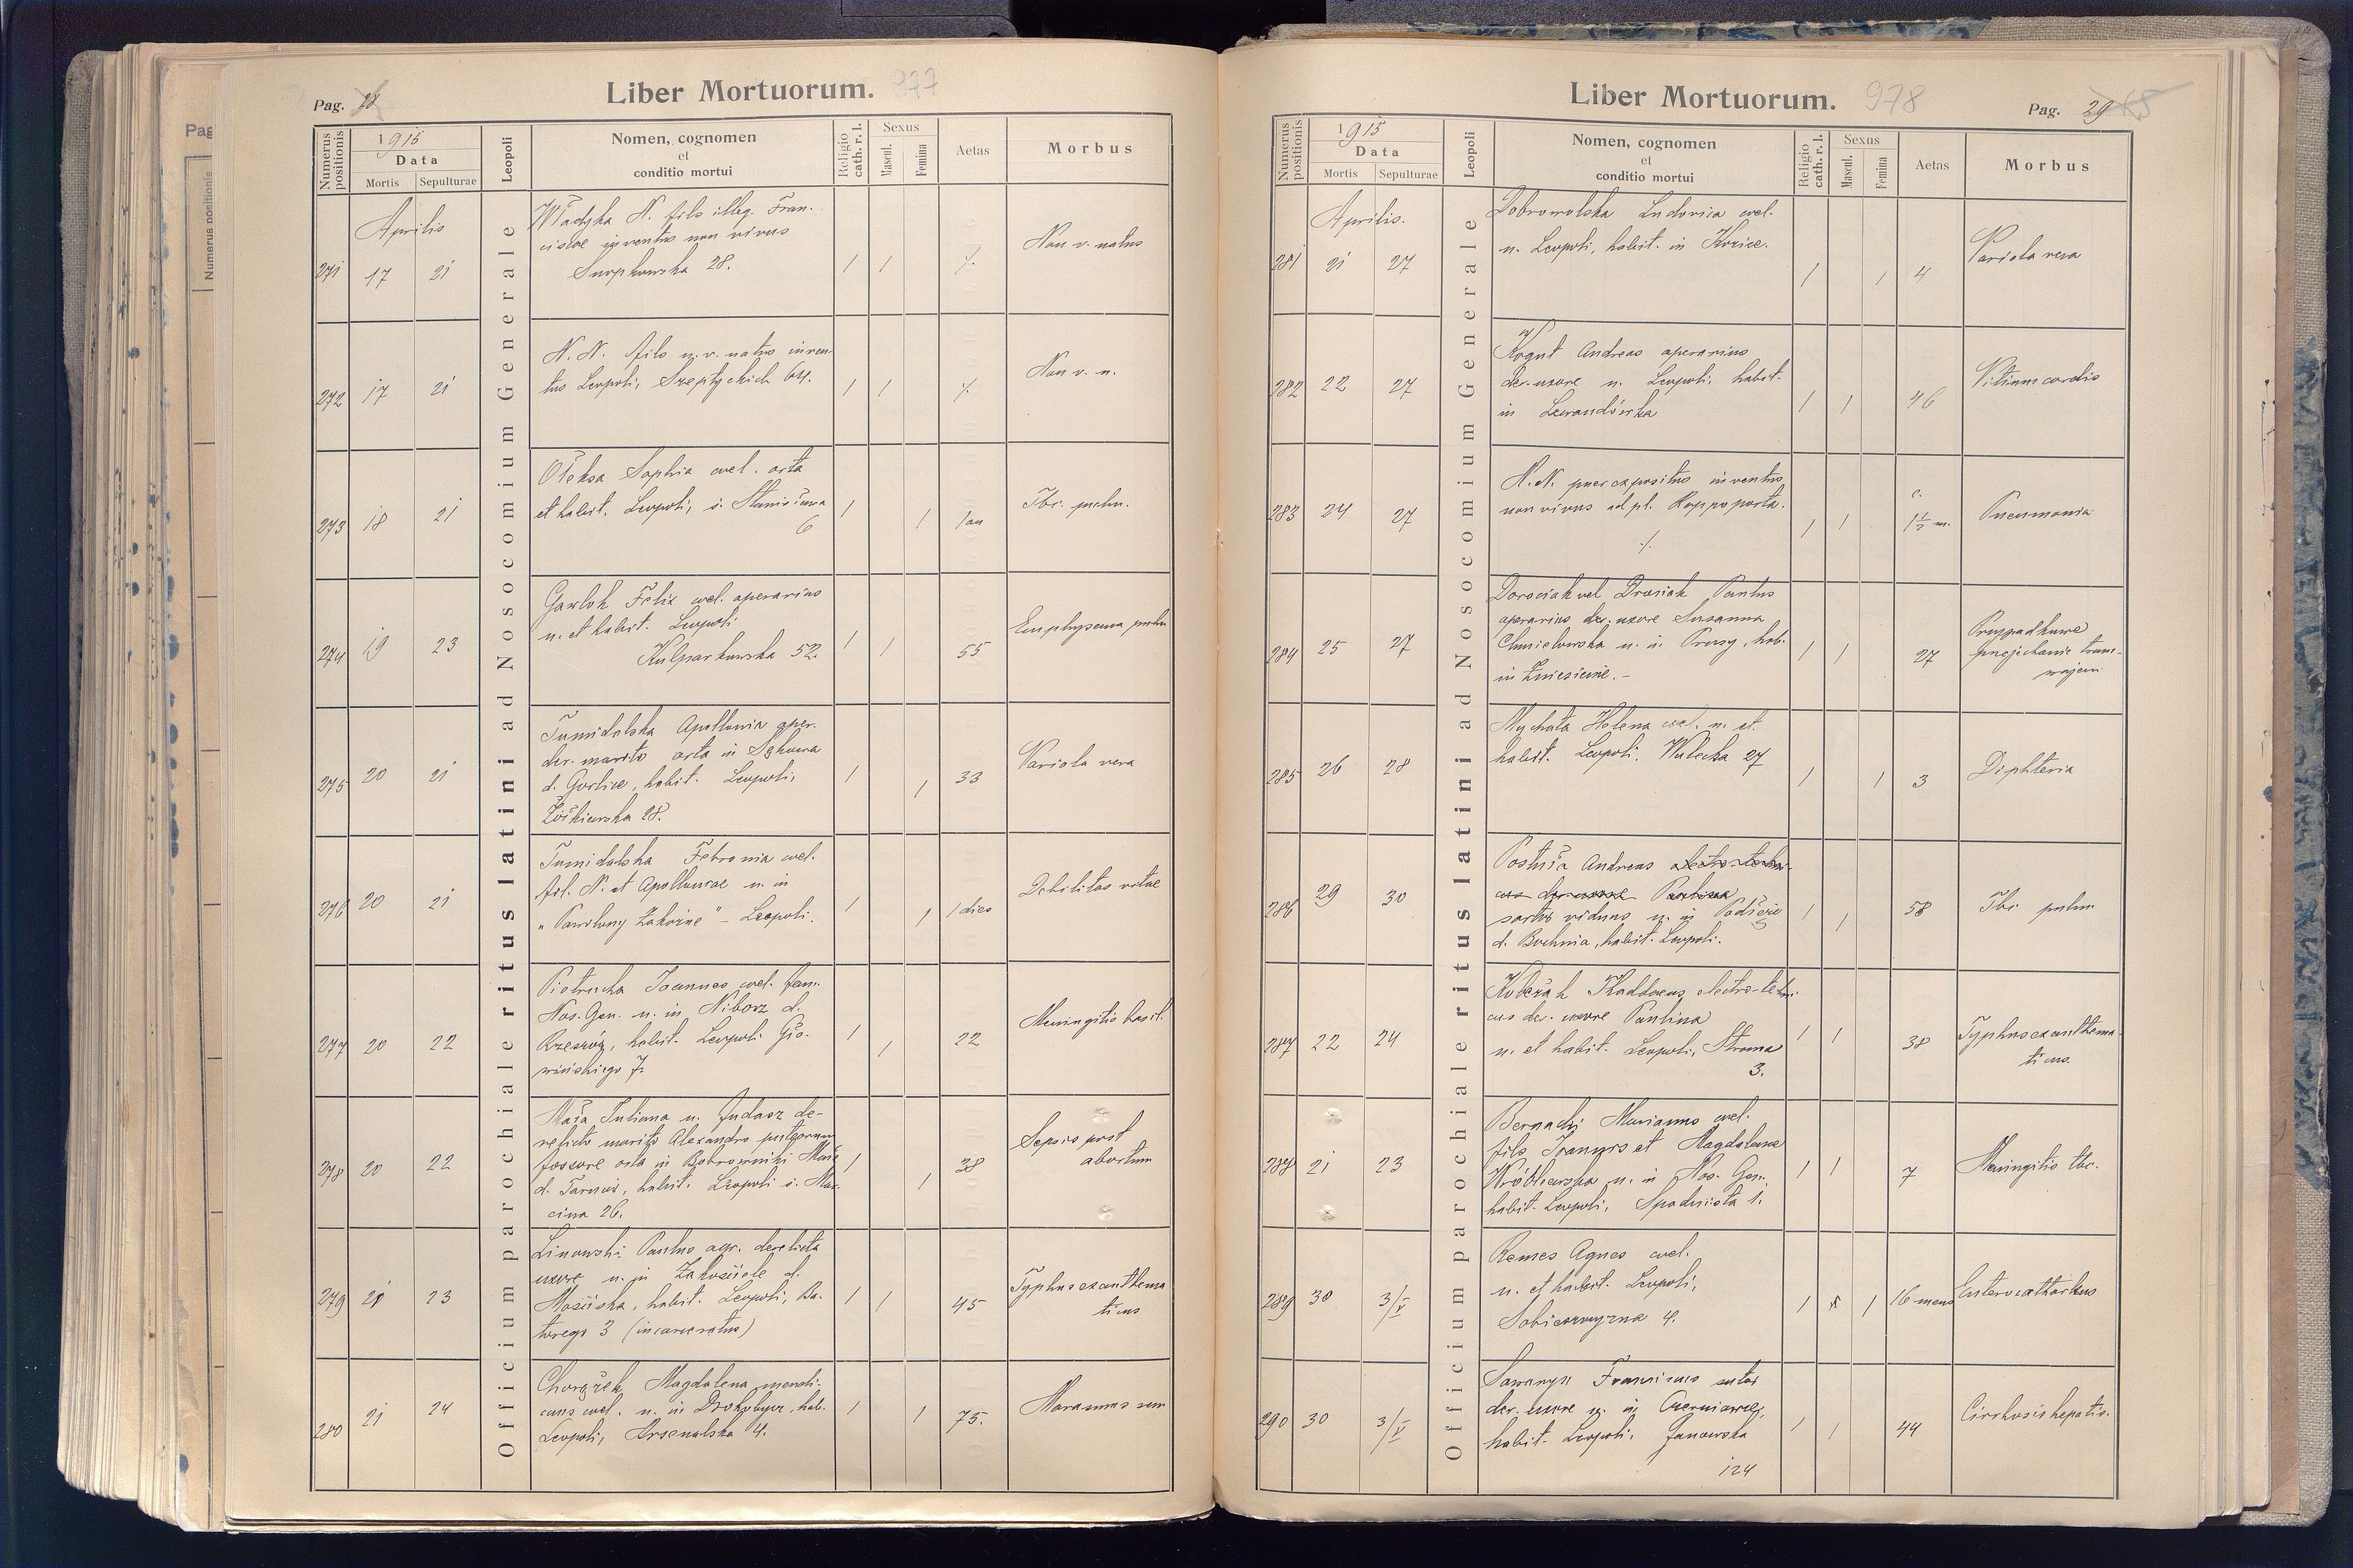 Liber Mortuorum. 977
Pag. 28
Numerus positionis
1915
Data
Mortis
Sepulturae
Leopoli
Nomen, cognomen
et
conditio mortui
Religio cath. r. l.
Sexus
Mascul.
Femina
Aetas
Morbus
Officium parochiale ritus latini ad Nosocomium Generale
Aprilis
271 17 21
Władyka N. fils illeg. Fran-
ciscae inventus non vivus
28.
1 1 /. Non v. natus
272 17 21
N. N. fils n. v. natus inven-
tus Leopoli, Szeptyckich 64.
1 1 /. Non v. n.
273 18 21
Ołeksa Sophia cael. orta
et habit. Leopoli, s. Stanisława
6
1 1 1 an Tbc. pulm.
274 19 23
Gawlok Felix cael. operarius
n. et habit. Leopoli
Kulparkowska 52.
1 1 55 Emphysema pulm
275 20 21
Tumidalska Apollonia oper.
der. marito orta in Sękowa
d. Gorlice, habit. Leopoli,
Żółkiewska 28.
1 1 33 Variola vera
276 20 21
Tumidalska Febronia cael.
fil. N. et Apolloniae n. in
" - Leopoli.
1 1 1 dies Debilitas vitae
277 20 22
Pietrucha Joannes cael. fam.
Nos. Gen. n. in d.
Rzeszów, habit. Leopoli Gło-
wińskiego 7.
1 1 22 Meningitis basil.
278 20 22
Mała Juliana n. Judasz de-
relicto marito Alexandro puteorum
fossore orta in Bobrowniki Małe
d. Tarnów, habit. Leopoli s. Mar-
cina 26.
1 1 38 Sepsis post
abortum
279 21 23
Linowski Paulus agr. derelicta
uxore n. in Zakościele d.
Mościska, habit. Leopoli, Ba-
torego 3 (incarceratus)
1 1 45 Typhus exanthema
ticus
280 21 24
Chorążek Magdalena mendi-
cans cael. n. in Drohobycz, hab.
Leopoli, Arsenalska 4.
1 1 75. Marasmus sen
Liber Mortuorum. 978
Pag. 29
Numerus positionis
1915
Data
Mortis
Sepulturae
Leopoli
Nomen, cognomen
et
conditio mortui
Religio cath. r. l.
Sexus
Mascul.
Femina
Aetas
Morbus
Officium parochiale ritus latini ad Nosocomium Generale
Aprilis.
281 21 27
Dobrowolska Ludovica cael.
n. Leopoli, habit. in Kozice.
1 1 4 Variola vera
282 22 27
Kogut Andreas operarius
der. uxore n. Leopoli, habit.
in Lewandówka
1 1 46 Vitium cordis
283 24 27
N. N. puer expositus inventus
non vivus ad pl. Rappoporta.
/.
1 1 c. 1 1/2 m. Pneumonia
284 25 27
Dorociak vel Drociak Paulus
operarius der. uxore Susanna
Chmielowska n. in Prusy, hab.
in Zniesienie. -
1 1 27 Przypadkowe
przejechanie tram-
wajem
285 26 28
Mychata Helena cael. n. et
habit. Leopoli. Wulecka 27
1 1 3 Diphteria
286 29 30
Postuła Andreas electrotechni-
cus der. uxore Paulina
sartor viduus n. in Podłęże
d. Bochnia, habit. Leopoli.
1 1 58 Tbc pulm.
287 22 24
Thaddaeus electro-techni-
cus der. uxore Paulina
n. et habit. Leopoli, Stroma
3.
1 1 38 Typhus exanthema-
ticus.
288 21 23
Marianus cael.
fils Joannis et Magdalenae
Wróblewska n. in Nos. Gen.
habit. Leopoli, Spadzista 1.
1 1 7 Meningitis tbc.
289 30 3/V
Remes Agnes cael.
n. et habit. Leopoli,
4.
1 1 16 mens Enterocatharhus
290 30 3/V
Franciscus sutor
der. uxore n. in
habit. Leopoli, Janowska
124
1 1 44 Cirrhosis hepatis.